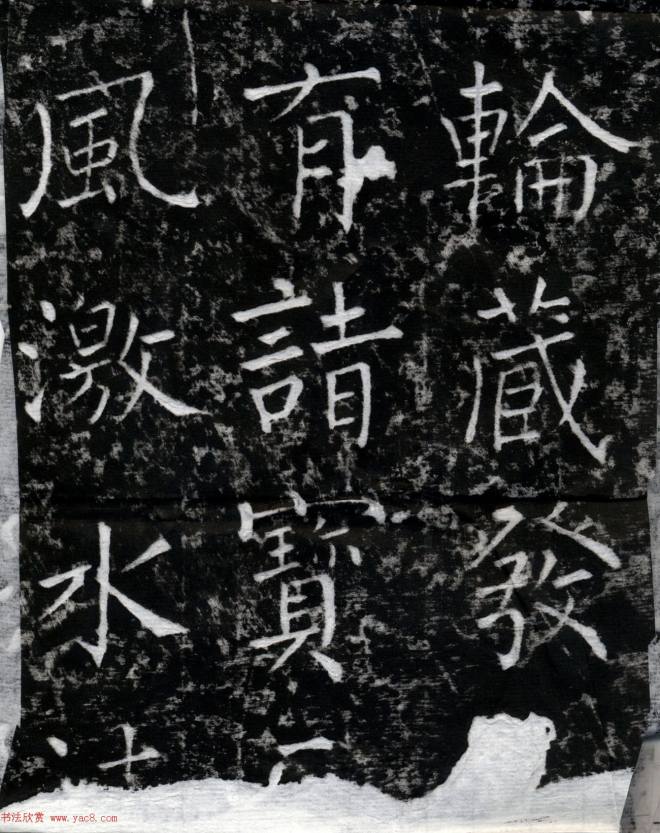 輪藏發
有寶
風激水
书法欣赏 www.yac8.com